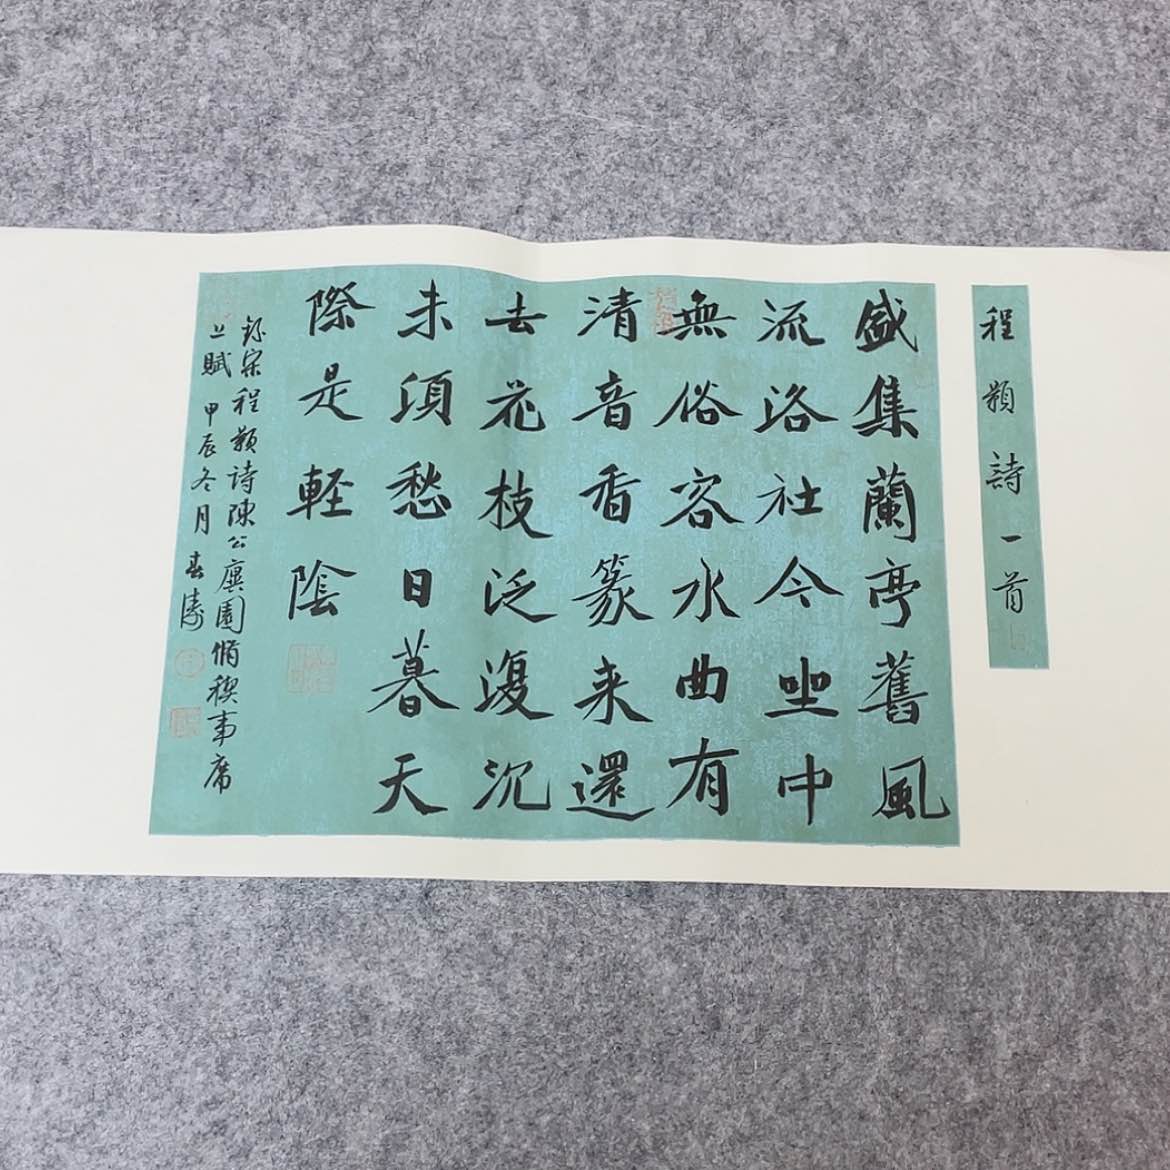 程顥詩一首
盛集蘭亭舊風
流洛社今坐中
無俗客水曲有
清音香篆来還
去花枝泛復沉
未須愁日暮天
際是輕陰
錄宋程顥詩陳公廙園脩禊事席
上賦 甲辰冬月春濤